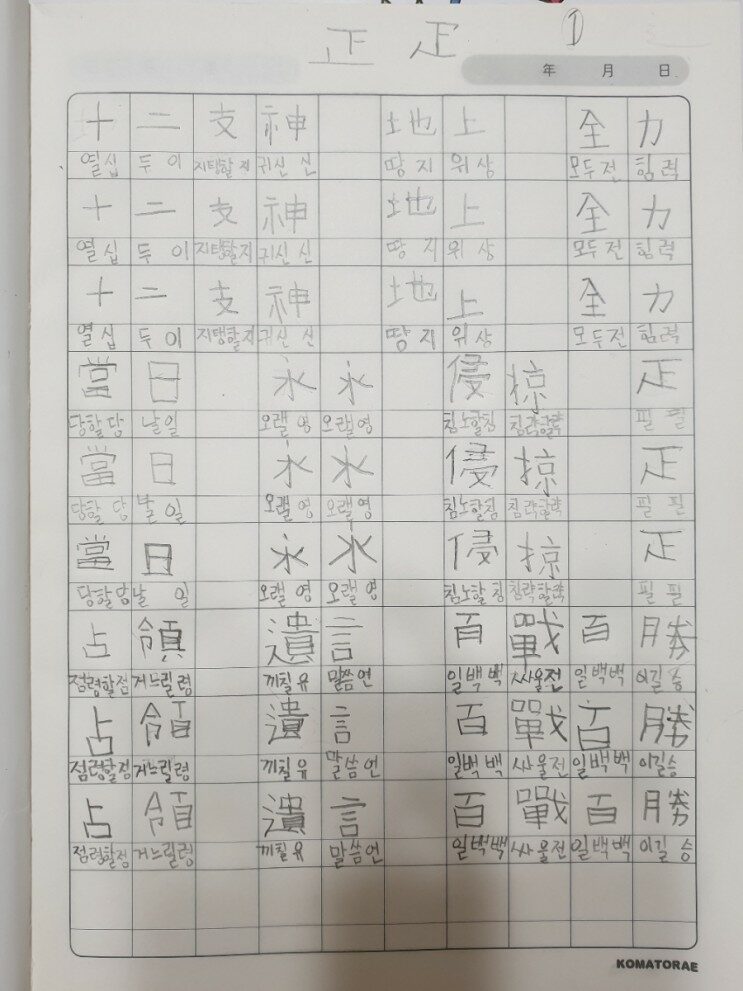 正 疋 ①
年 月 日
十 二 支 神 地 上 全 力
열 십 두 이 지탱할 지 귀신 신 땅 지 위 상 모두 전 힘 력
十 二 支 神 地 上 全 力
열 십 두 이 지탱할 지 귀신 신 땅 지 위 상 모두 전 힘 력
十 二 支 神 地 上 全 力
열 십 두 이 지탱할 지 귀신 신 땅 지 위 상 모두 전 힘 력
當 日 永 氷 侵 掠 疋
당할 당 날 일 오랠 영 오랠 영 침노할 침 침략할 략 필 필
當 日 永 氷 侵 掠 疋
당할 당 날 일 오랠 영 오랠 영 침노할 침 침략할 략 필 필
當 日 永 氷 侵 掠 疋
당할 당 날 일 오랠 영 오랠 영 침노할 침 침략할 략 필 필
占 領 遺 言 百 戰 百 勝
점령할 점 거느릴 령 끼칠 유 말씀 언 일백 백 싸울 전 일백 백 이길 승
占 領 遺 言 百 戰 百 勝
점령할 점 거느릴 령 끼칠 유 말씀 언 일백 백 싸울 전 일백 백 이길 승
占 領 遺 言 百 戰 百 勝
점령할 점 거느릴 령 끼칠 유 말씀 언 일백 백 싸울 전 일백 백 이길 승
KOMATORAE